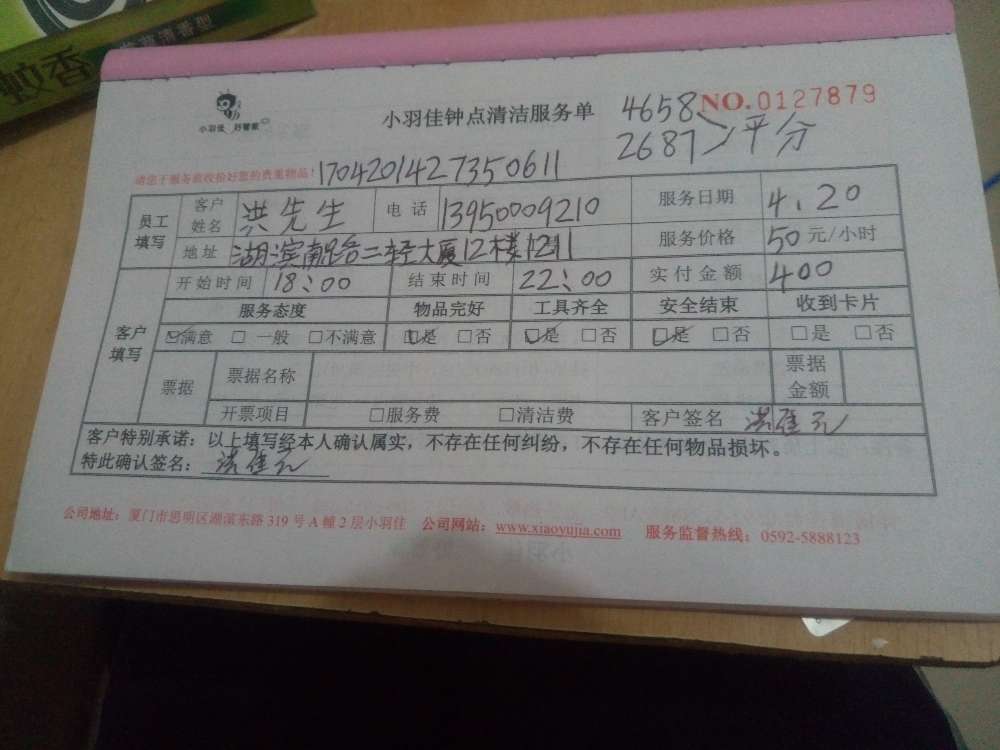 蚊香
清香型
小羽佳 好管家
小羽佳钟点清洁服务单 4658 NO.0127879
2687 平分
请您于服务前收拾好您的贵重物品! 170420142735061​1
员工填写 客户姓名 洪先生 电话 13950009210 服务日期 4.20
地址 湖滨南路二轻大厦12楼1211 服务价格 50元/小时
客户填写 开始时间 18:00 结束时间 22:00 实付金额 400
服务态度 物品完好 工具齐全 安全结束 收到卡片
☑满意 □一般 □不满意 ☑是 □否 ☑是 □否 ☑是 □否 □是 □否
票据 票据名称 票据金额
开票项目 □服务费 □清洁费 客户签名 洪佳
客户特别承诺:以上填写经本人确认属实,不存在任何纠纷,不存在任何物品损坏。
特此确认签名: 洪佳
公司地址:厦门市思明区湖滨东路 319 号 A 幢 2 层小羽佳 公司网站:www.xiaoyujia.com 服务监督热线:0592-5888123